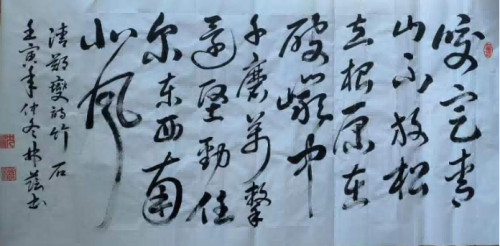 咬定青
山不放松
立根原在
破巖中
千磨萬擊
还堅勁任
尔东西南
北風
清郑燮 竹石
壬寅年仲冬林 书